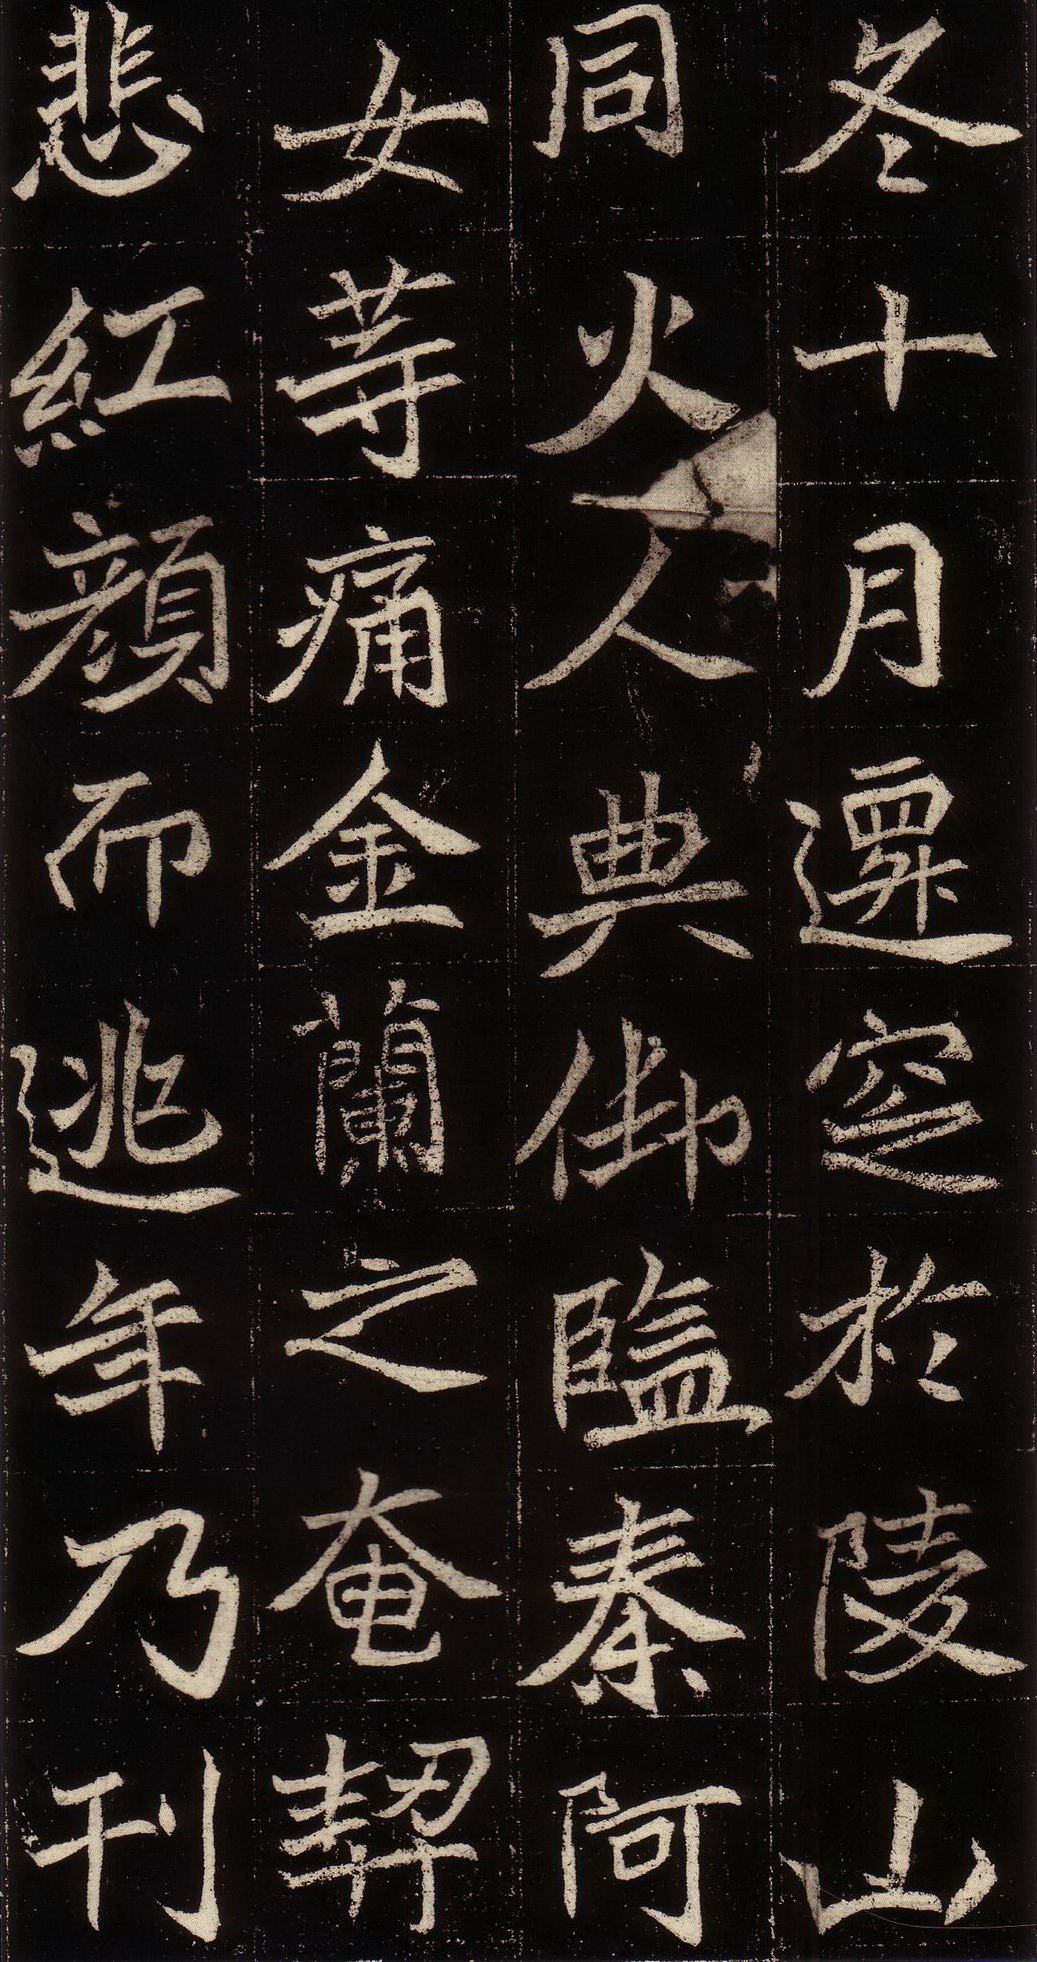 冬十月遷窆於陵山
同火人典御監秦阿
女等痛金蘭之奄契
悲紅顏而逃年乃刊